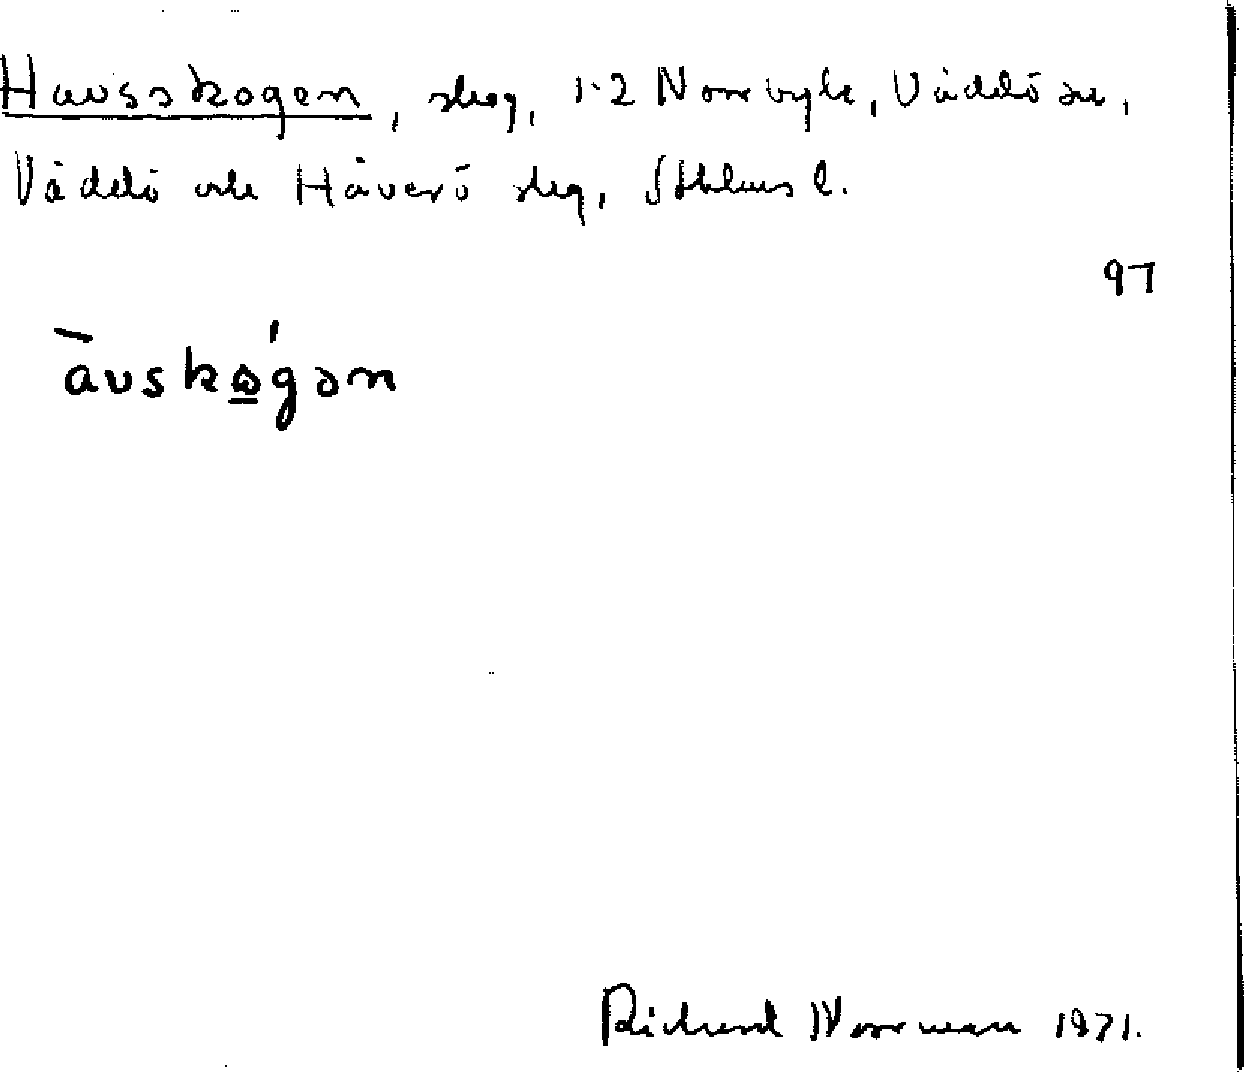 Havsskogen, skog, 1-2 Norrbyle, Väddö sn,
Väddö och Häverö skg, Sthlms l.
97
avskogən
Richard Norrman 1971.